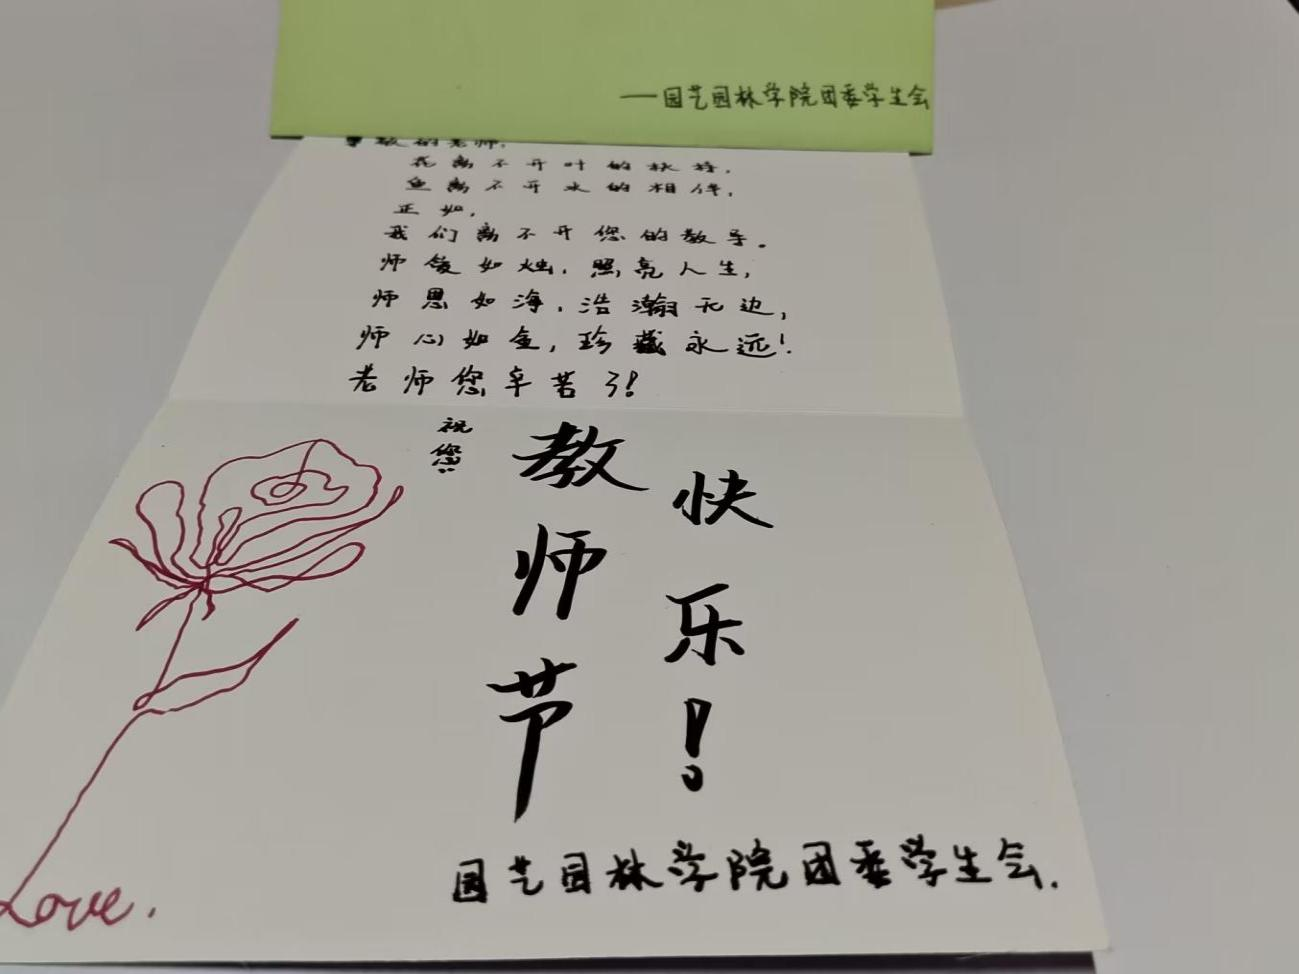 ——园艺园林学院团委学生会
敬的老师,
花离不开叶的扶持,
鱼离不开水的相伴,
正如,
我们离不开您的教导。
师爱如烛,照亮人生,
师恩如海,浩瀚无边,
师心如金,珍藏永远!
老师您辛苦了!
祝您:
教师节
快乐!
园艺园林学院团委学生会.
Love.